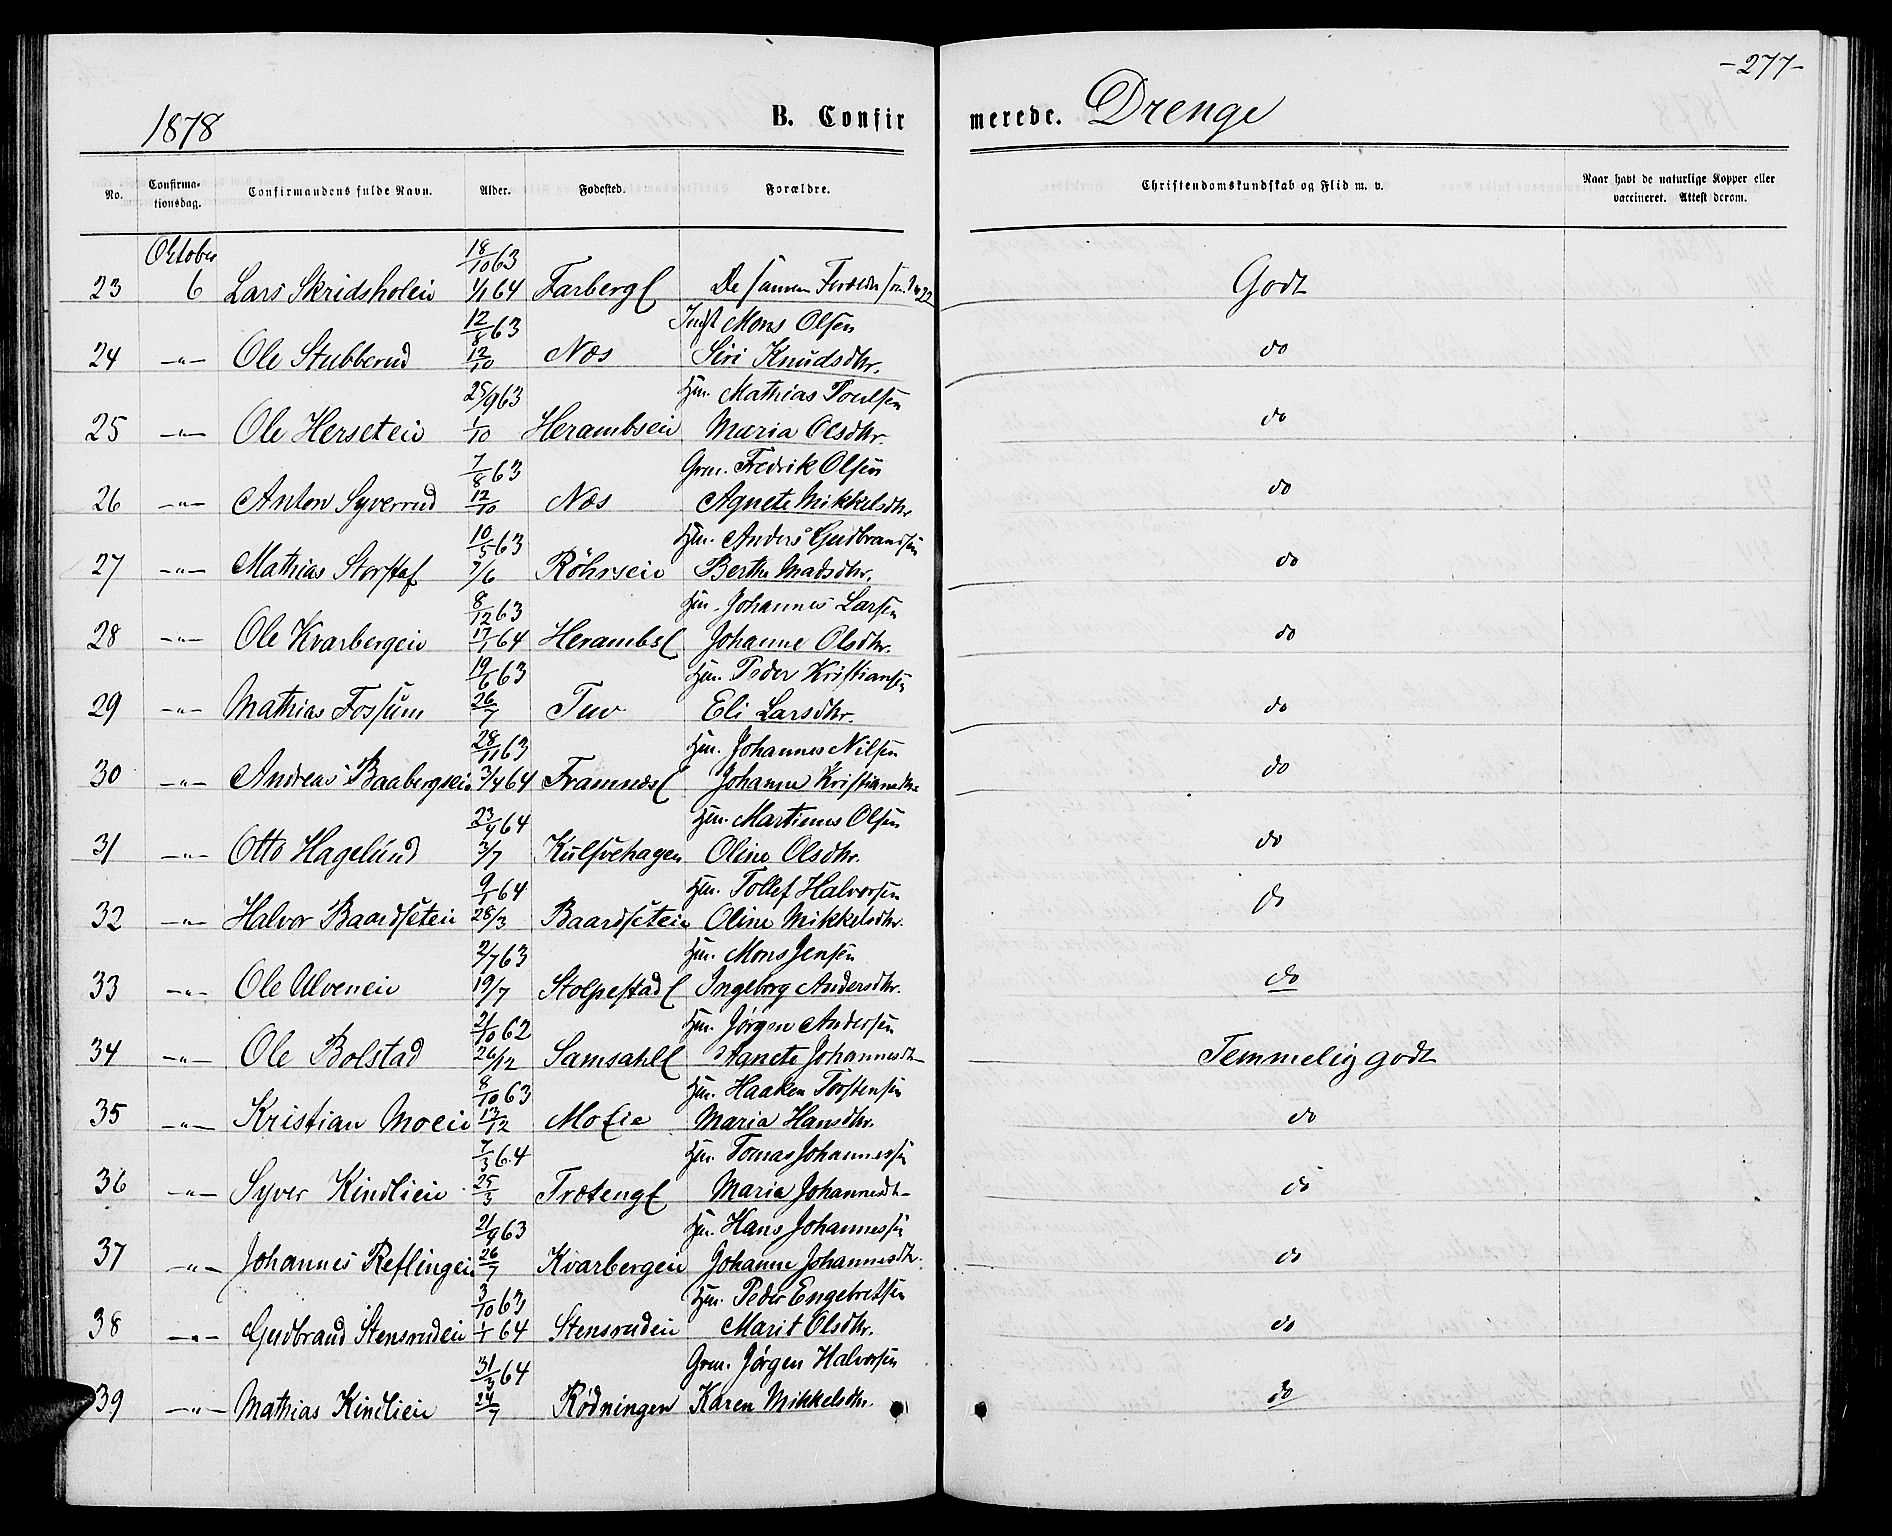 -277-
1878 B. Confirmerede. Drenge
No. Confirmationsdag. Confirmandens fulde Navn. Alder. Fødested. Forældre. Christendomskundskab og Flid m. v. Naar havt de naturlige Kopper eller vaccineret. Attest derom.
October 18/10 63
23 6 Lars Skridsholen 1/1 64 Farberg De samme Forældre som No 22 Godt
12/8 63 Indst Mons Olsen
24 -"- Ole Stubberud 12/10 Næs Siri Knudsdtr. do
25/9 63 Hm. Mathias Poulsen
25 -"- Ole Herseteie 1/10 Herambseie Maria Olsdtr. do
7/8 63 Grm. Fredrik Olsen
26 -"- Anton Syverrud 12/10 Næs Agnete Mikkelsdtr do
10/5 63 Hm. Anders Gudbrandsen
27 -"- Mathias Storstaf 7/6 Röhrseie Berthe Madsdtr. do
8/12 63 Hm. Johannes Larsen
28 -"- Ole Kvarbergeie 17/1 64 Herambs Johanne Olsdtr. do
19/6 63 Hm. Peder Kristiansen
29 -"- Mathias Fossum 26/7 Tuv Eli Larsdtr. do
28/11 63 Hm. Johannes Nilsen
30 -"- Andreas Baabergseie 3/4 64 Framnes Johanne Kristiansdtr do
23/4 64 Hm. Martinus Olsen
31 -"- Otto Hagelund 3/7 Kulsvehagen Oline Olsdtr. do
9/1 64 Hm. Tollef Halvorsen
32 -"- Halvor Baardseteie 28/3 Baardseteie Oline Mikkelsdtr. do
2/7 63 Hm. Mons Jensen
33 -"- Ole Ulveneie 19/7 Stolpestad Ingeborg Andersdtr. do
21/10 62 Hm. Jørgen Andersen
34 -"- Ole Bolstad 26/12 Samsahl Agnete Johannesdt Temmelig godt
8/10 63 Hm. Haaken Torstensen
35 -"- Kristian Moeie 13/12 Moeie Maria Hansdtr. do
7/3 64 Hm. Tomas Johannessen
36 -"- Syver Kindlieie 25/3 Træteng Maria Johannesdt do
21/9 63 Hm. Hans Johannessen
37 -"- Johannes Reflingeie 26/7 Kvarbergeie Johanne Johannesdtr. do
3/10 63 Hm. Peder Engebretsen
38 -"- Gudbrand Stensrudeie 1/1 64 Stensrudeie Marit Olsdtr. do
31/3 64 Grm. Jørgen Halvorsen
39 -"- Mathias Kindlieie 24/7 Rødningen Karen Mikkelsdtr. do